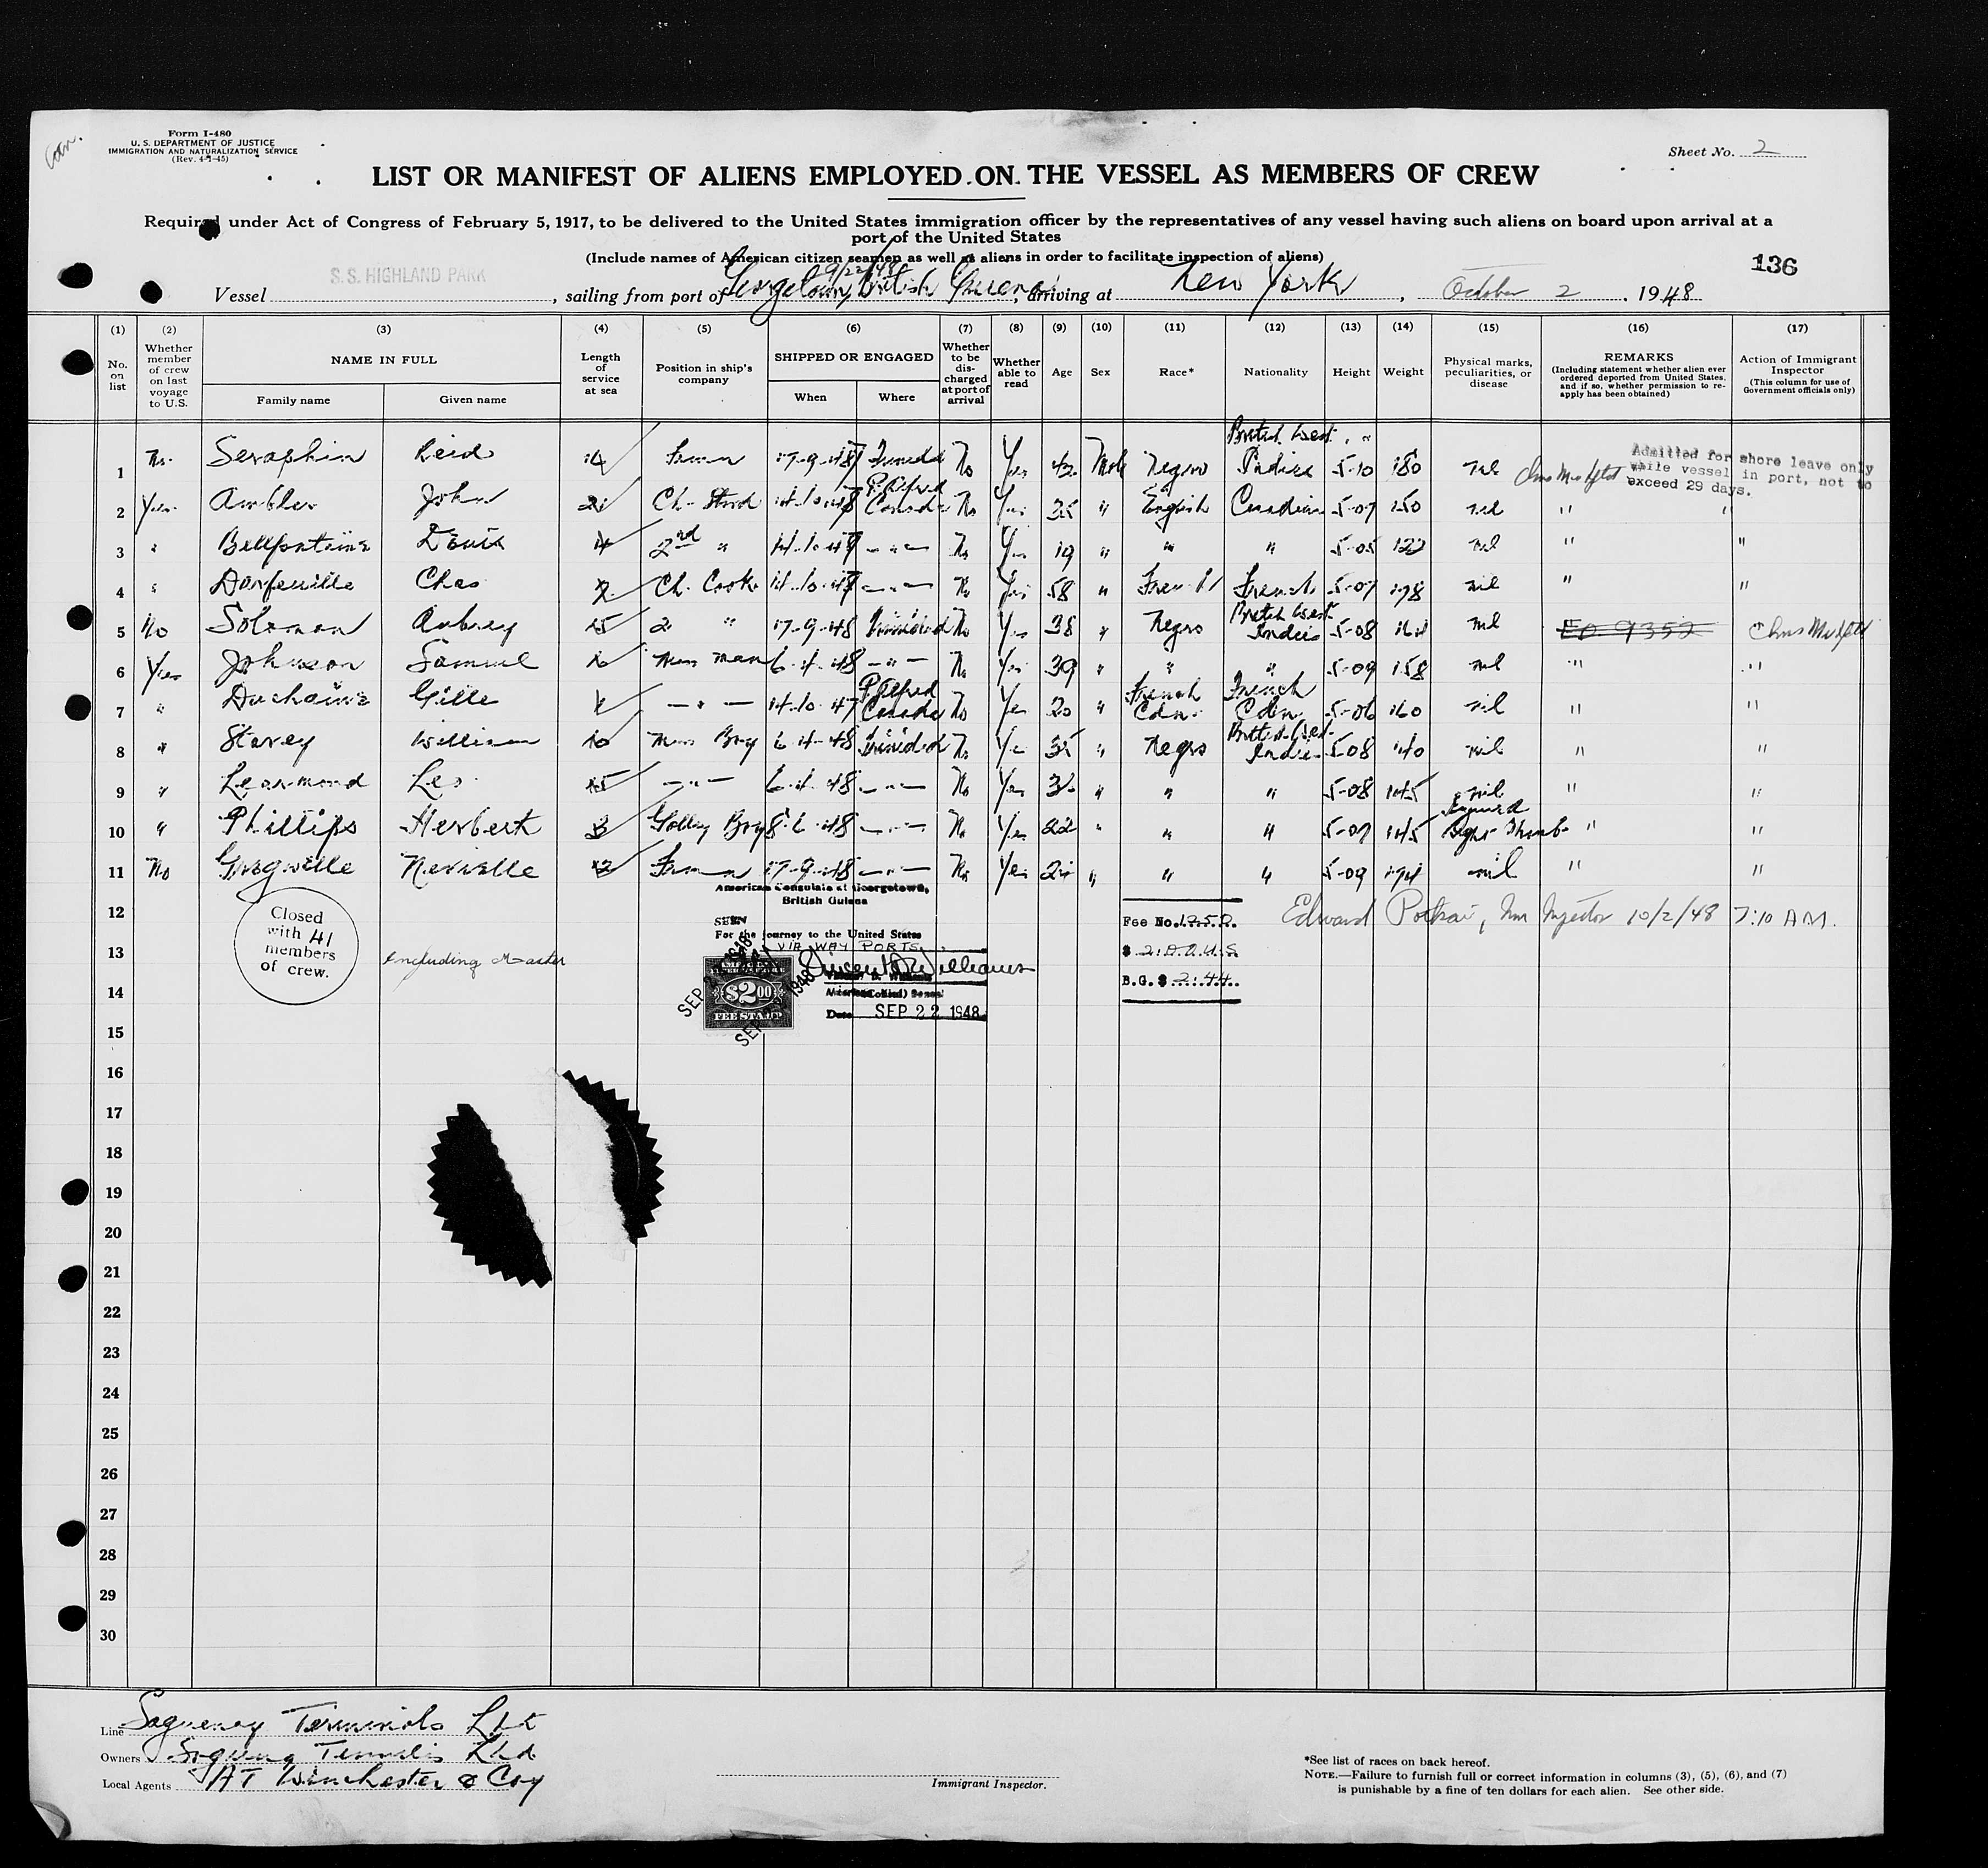 Can.
Form I-480
U. S. DEPARTMENT OF JUSTICE
IMMIGRATION AND NATURALIZATION SERVICE
(Rev. 4-1-45)
Sheet No. 2
LIST OR MANIFEST OF ALIENS EMPLOYED ON THE VESSEL AS MEMBERS OF CREW
Required under Act of Congress of February 5, 1917, to be delivered to the United States immigration officer by the representatives of any vessel having such aliens on board upon arrival at a
port of the United States
(Include names of American citizen seamen as well as aliens in order to facilitate inspection of aliens)
136
9/22/48
Vessel S. S. HIGHLAND PARK, sailing from port of Georgetown, British Guiana, arriving at New York, October 2, 1948
(1) (2) (3) (4) (5) (6) (7) (8) (9) (10) (11) (12) (13) (14) (15) (16) (17)
No. on list
Whether member of crew on last voyage to U.S.
NAME IN FULL
Family name
Given name
Length of service at sea
Position in ship's company
SHIPPED OR ENGAGED
When
Where
Whether to be discharged at port of arrival
Whether able to read
Age
Sex
Race*
Nationality
Height
Weight
Physical marks, peculiarities, or disease
REMARKS
(Including statement whether alien ever ordered deported from United States, and if so, whether permission to re-apply has been obtained)
Action of Immigrant Inspector
(This column for use of Government officials only)
1 No Seraphin Reid 14 17-9-48 No Yes 42 Male Negro British West Indies 5-10 180 nil
Admitted for shore leave only
while vessel in port, not to
exceed 29 days.
2 Yes Ambler John Ch. Stwd P. Alfred Canada No Yes 35 " English Canadian 5-07 150 nil " "
3 " Bellfontaine 2nd " 14-10-47 -"- No Yes 19 " " " 5-05 122 nil " "
4 " Chas Ch. Cook 14-10-47 -"- No Yes 58 " French French 5-07 178 nil " "
5 No Solomon Aubrey 15 2 " 17-9-48 Trinidad No Yes 38 " Negro British West Indies 5-08 nil E.O. 9352
6 Yes Johnson Samuel 10 Mess man 6-4-48 -"- No Yes 39 " " " 5-09 158 nil " "
7 " Duchaine Gille -"- 14-10-47 P. Alfred Canada No Yes 20 " French Cdn. French Cdn. 5-06 160 nil " "
8 " William 10 Mess Boy 6-4-48 Trinidad No Yes 35 " Negro British West Indies 5-08 140 nil " "
9 " Learmond Leo 15 -"- 6-4-48 -"- No Yes " " " 5-08 145 nil " "
10 " Phillips Herbert 3 Galley Boy 8-6-48 -"- No Yes 22 " " " 5-07 145 Injured Right Thumb " "
11 No Neville 2 17-9-48 -"- No Yes " " " 5-09 174 nil " "
12
13
14
15
16
17
18
19
20
21
22
23
24
25
26
27
28
29
30
Closed
with 41
members
of crew.
including Master
American Consulate at Georgetown,
British Guiana
SEEN
For the journey to the United States
VIA WAY PORTS.
$2.00
FEE STAMP
Date SEP 22 1948
Fee No. 1252
$ 2.00 U.S
B.G. $ 2.44
Edward 10/2/48 7:10 A.M.
Line Saguenay Terminals Ltd
Owners Saguenay Terminals Ltd.
Local Agents AT Winchester & Coy
Immigrant Inspector.
*See list of races on back hereof.
NOTE.—Failure to furnish full or correct information in columns (3), (5), (6), and (7)
is punishable by a fine of ten dollars for each alien. See other side.